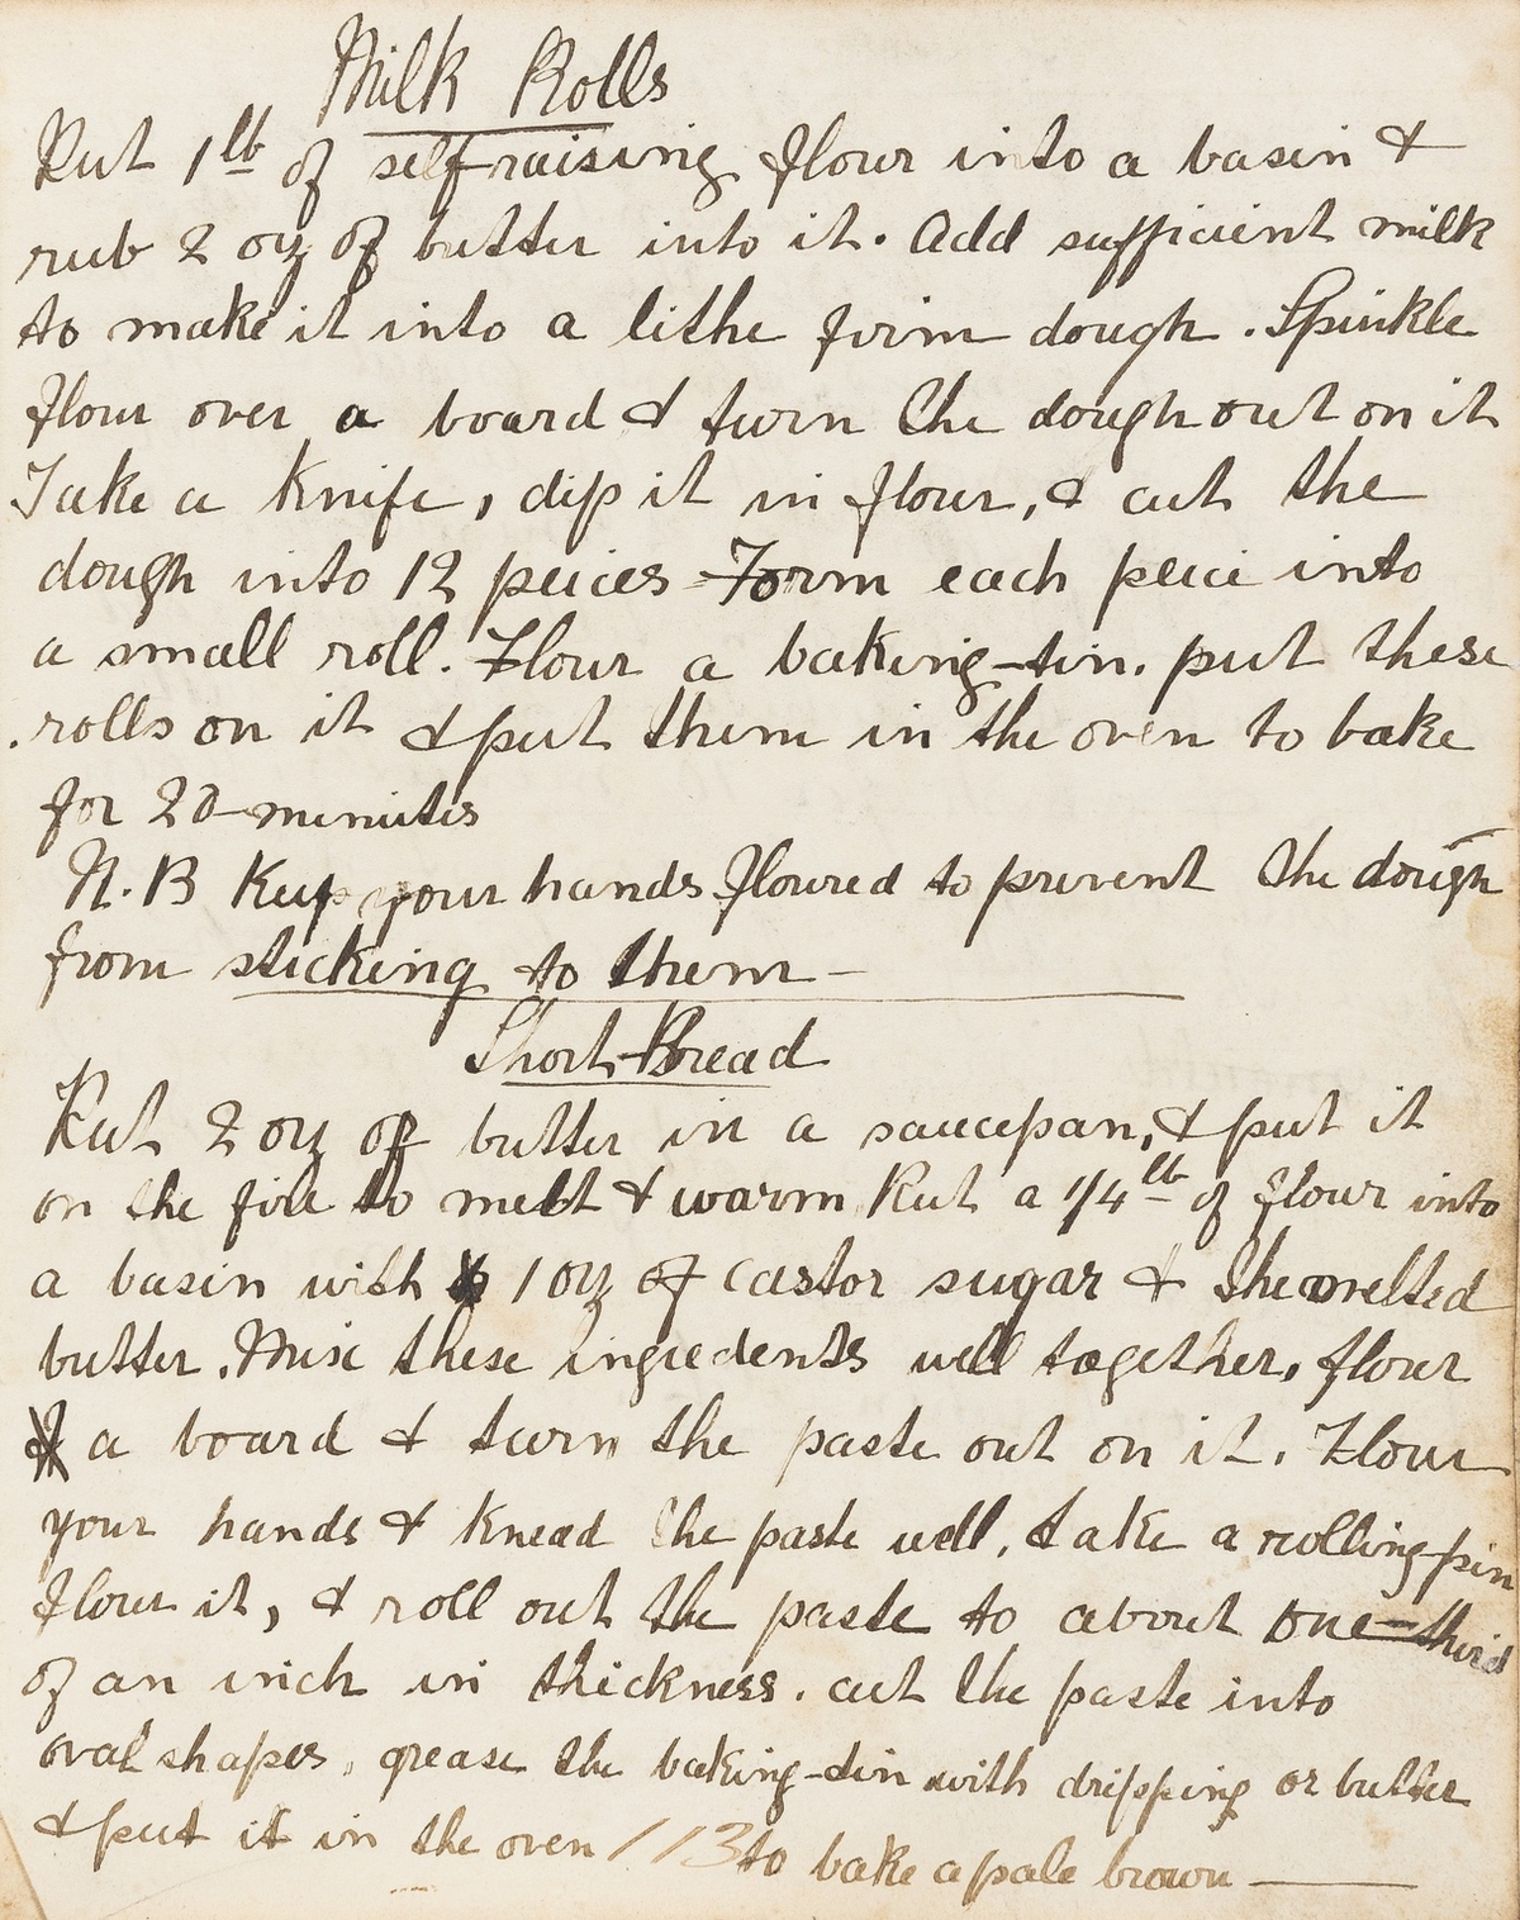 Milk Rolls
Put 1lb of self raising flour into a basin &
rub 2 oz of butter into it. Add sufficient milk
to make it into a lithe firm dough. Spinkle
flour over a board & turn the dough out on it
Take a knife, dip it in flour, & cut the
dough into 12 peices Form each peice into
a small roll. Flour a baking-tin. put these
rolls on it & put them in the oven to bake
for 20 minutes
N.B Keep your hands floured to prevent the dough
from sticking to them—
Short-Bread
Put 2 oz of butter in a saucepan, & put it
on the fire to melt & warm Put a 1/4lb of flour into
a basin with 1 oz of castor sugar & the melted
butter. Mix these ingredents well together, flour
a board & turn the paste out on it. Flour
your hands & knead the paste well, take a rolling-pin
flour it, & roll out the paste to about one-third
of an inch in thickness. cut the paste into
oval shapes, grease the baking-tin with dripping or butter
& put it in the oven 113 to bake a pale brown—